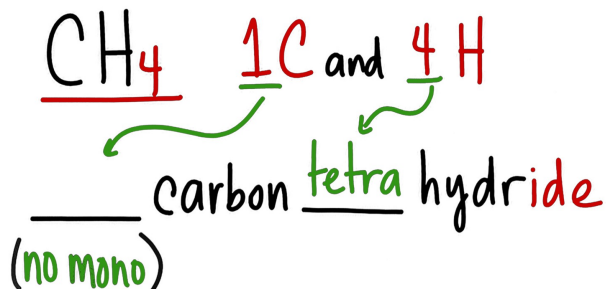 CH4 1C and 4 H
____ carbon tetra hydride
(no mono)